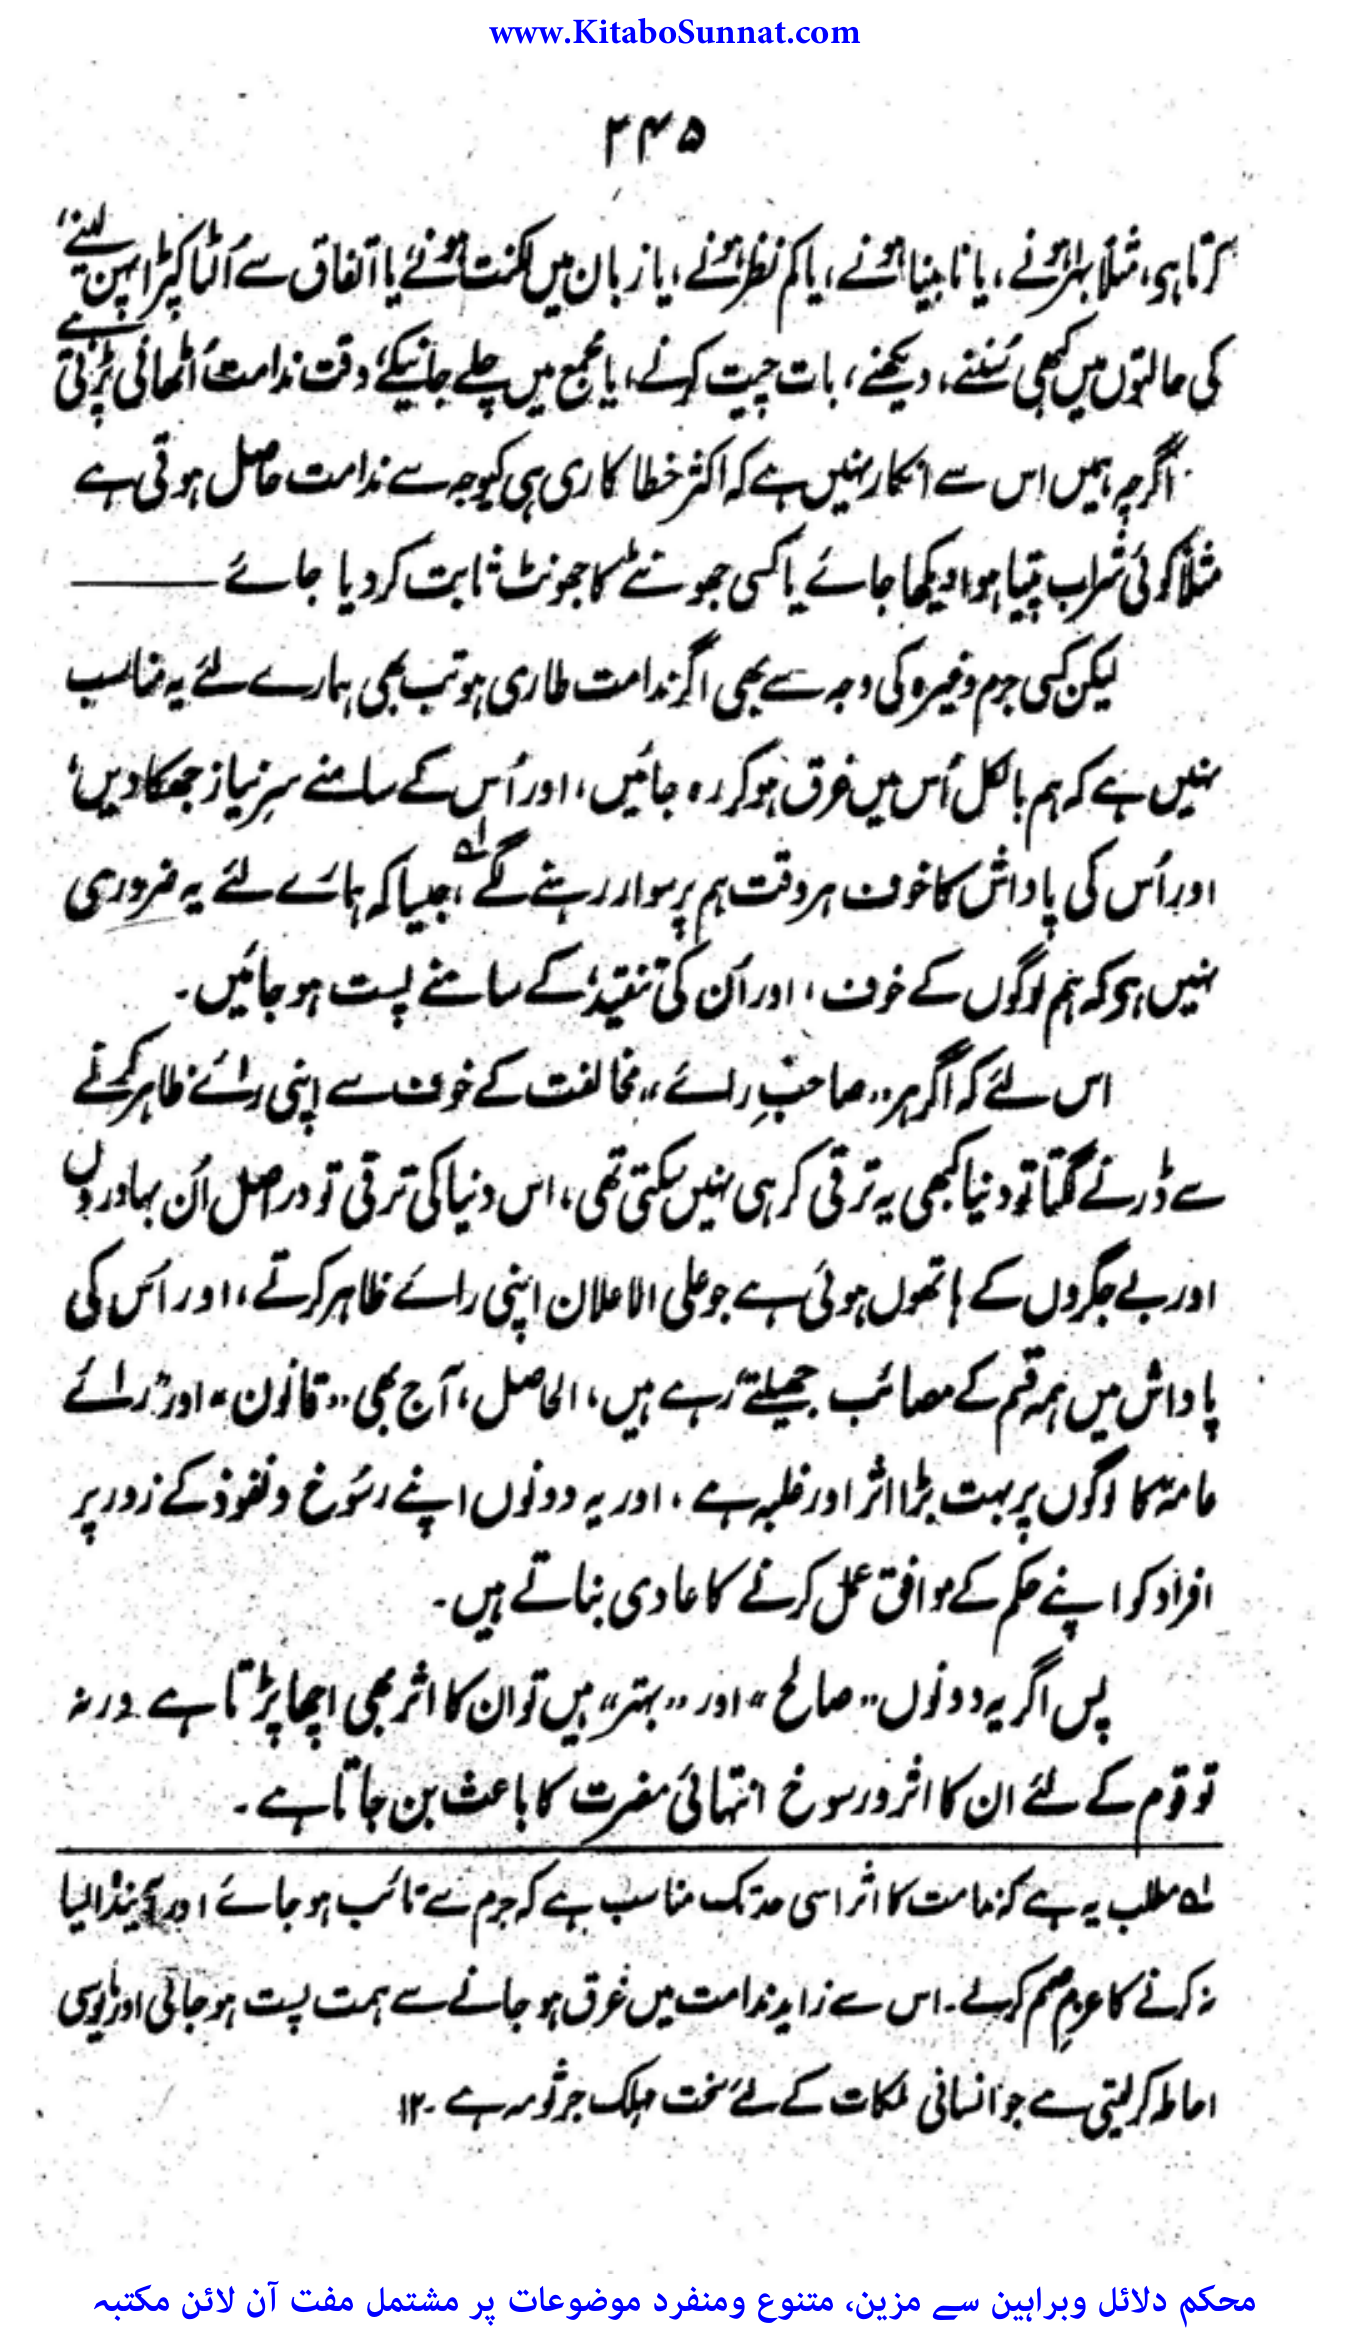 www.KitaboSunnat.com
۲۴۵
کرتا ہی، مثلاً بہرا ہونے، یا نابینا ہونے، یا کم نظر ہونے، یا زبان میں لکنت ہونے یا اتفاق سے اُلٹا کپڑا پہن لینے،
کی حالتوں میں کبھی سُننے، دیکھنے، بات چیت کرنے، یا مجمع میں چلے جانیکے وقت ندامت اُٹھانی پڑتی ہے
اگرچہ ہمیں اس سے انکار نہیں ہے کہ اکثر خطا کاری ہی کیوجہ سے ندامت حاصل ہوتی ہے
مثلاً کوئی شراب پیتا ہوا دیکھا جائے یا کسی جھوٹے کا جھونٹ ثابت کر دیا جائے ———
لیکن کسی جرم وغیرہ کی وجہ سے بھی اگر ندامت طاری ہو تب بھی ہمارے لئے یہ مناسب
نہیں ہے کہ ہم بالکل اُس میں غرق ہو کر رہ جائیں، اور اُس کے سامنے سرِ نیاز جھکا دیں،
اور اُس کی پاداش کا خوف ہر وقت ہم پر سوار رہنے لگے ؂۱، جیسا کہ ہمارے لئے یہ ضروری
نہیں ہی کہ ہم لوگوں کے خوف، اور اُن کی تنقید کے سامنے پست ہو جائیں۔
اس لئے کہ اگر ہر "صاحبِ رائے" مخالفت کے خوف سے اپنی رائے ظاہر کرنے
سے ڈرنے لگتا تو دنیا کبھی یہ ترقی کر ہی نہیں سکتی تھی، اس دنیا کی ترقی تو دراصل اُن بہادروں
اور بے جگروں کے ہاتھوں ہوئی ہے جو علی الاعلان اپنی رائے ظاہر کرتے، اور اُس کی
پاداش میں ہمہ قسم کے مصائب جھیلتے رہے ہیں، الحاصل، آج بھی "قانون" اور "رائے
عامہ" کا لوگوں پر بہت بڑا اثر اور غلبہ ہے، اور یہ دونوں اپنے رسُوخ و نفوذ کے زور پر
افراد کو اپنے حکم کے موافق عمل کرنے کا عادی بناتے ہیں۔
پس اگر یہ دونوں "صالح" اور "بہتر" ہیں تو ان کا اثر بھی اچھا پڑتا ہے ورنہ
تو قوم کے لئے ان کا اثر و رسوخ انتہائی مضرت کا باعث بن جاتا ہے۔
؂۱ مطلب یہ ہے کہ ندامت کا اثر اسی حد تک مناسب ہے کہ جرم سے تائب ہو جائے اور آیندہ ایسا
نہ کرنے کا عزمِ صمم کرلے۔ اس سے زاید ندامت میں غرق ہو جانے سے ہمت پست ہو جاتی اور مایوسی
احاطہ کر لیتی ہے جو انسانی ملکات کے لئے سخت مہلک جرثومہ ہے۔ ۱۲
محکم دلائل وبراہین سے مزین، متنوع ومنفرد موضوعات پر مشتمل مفت آن لائن مکتبہ